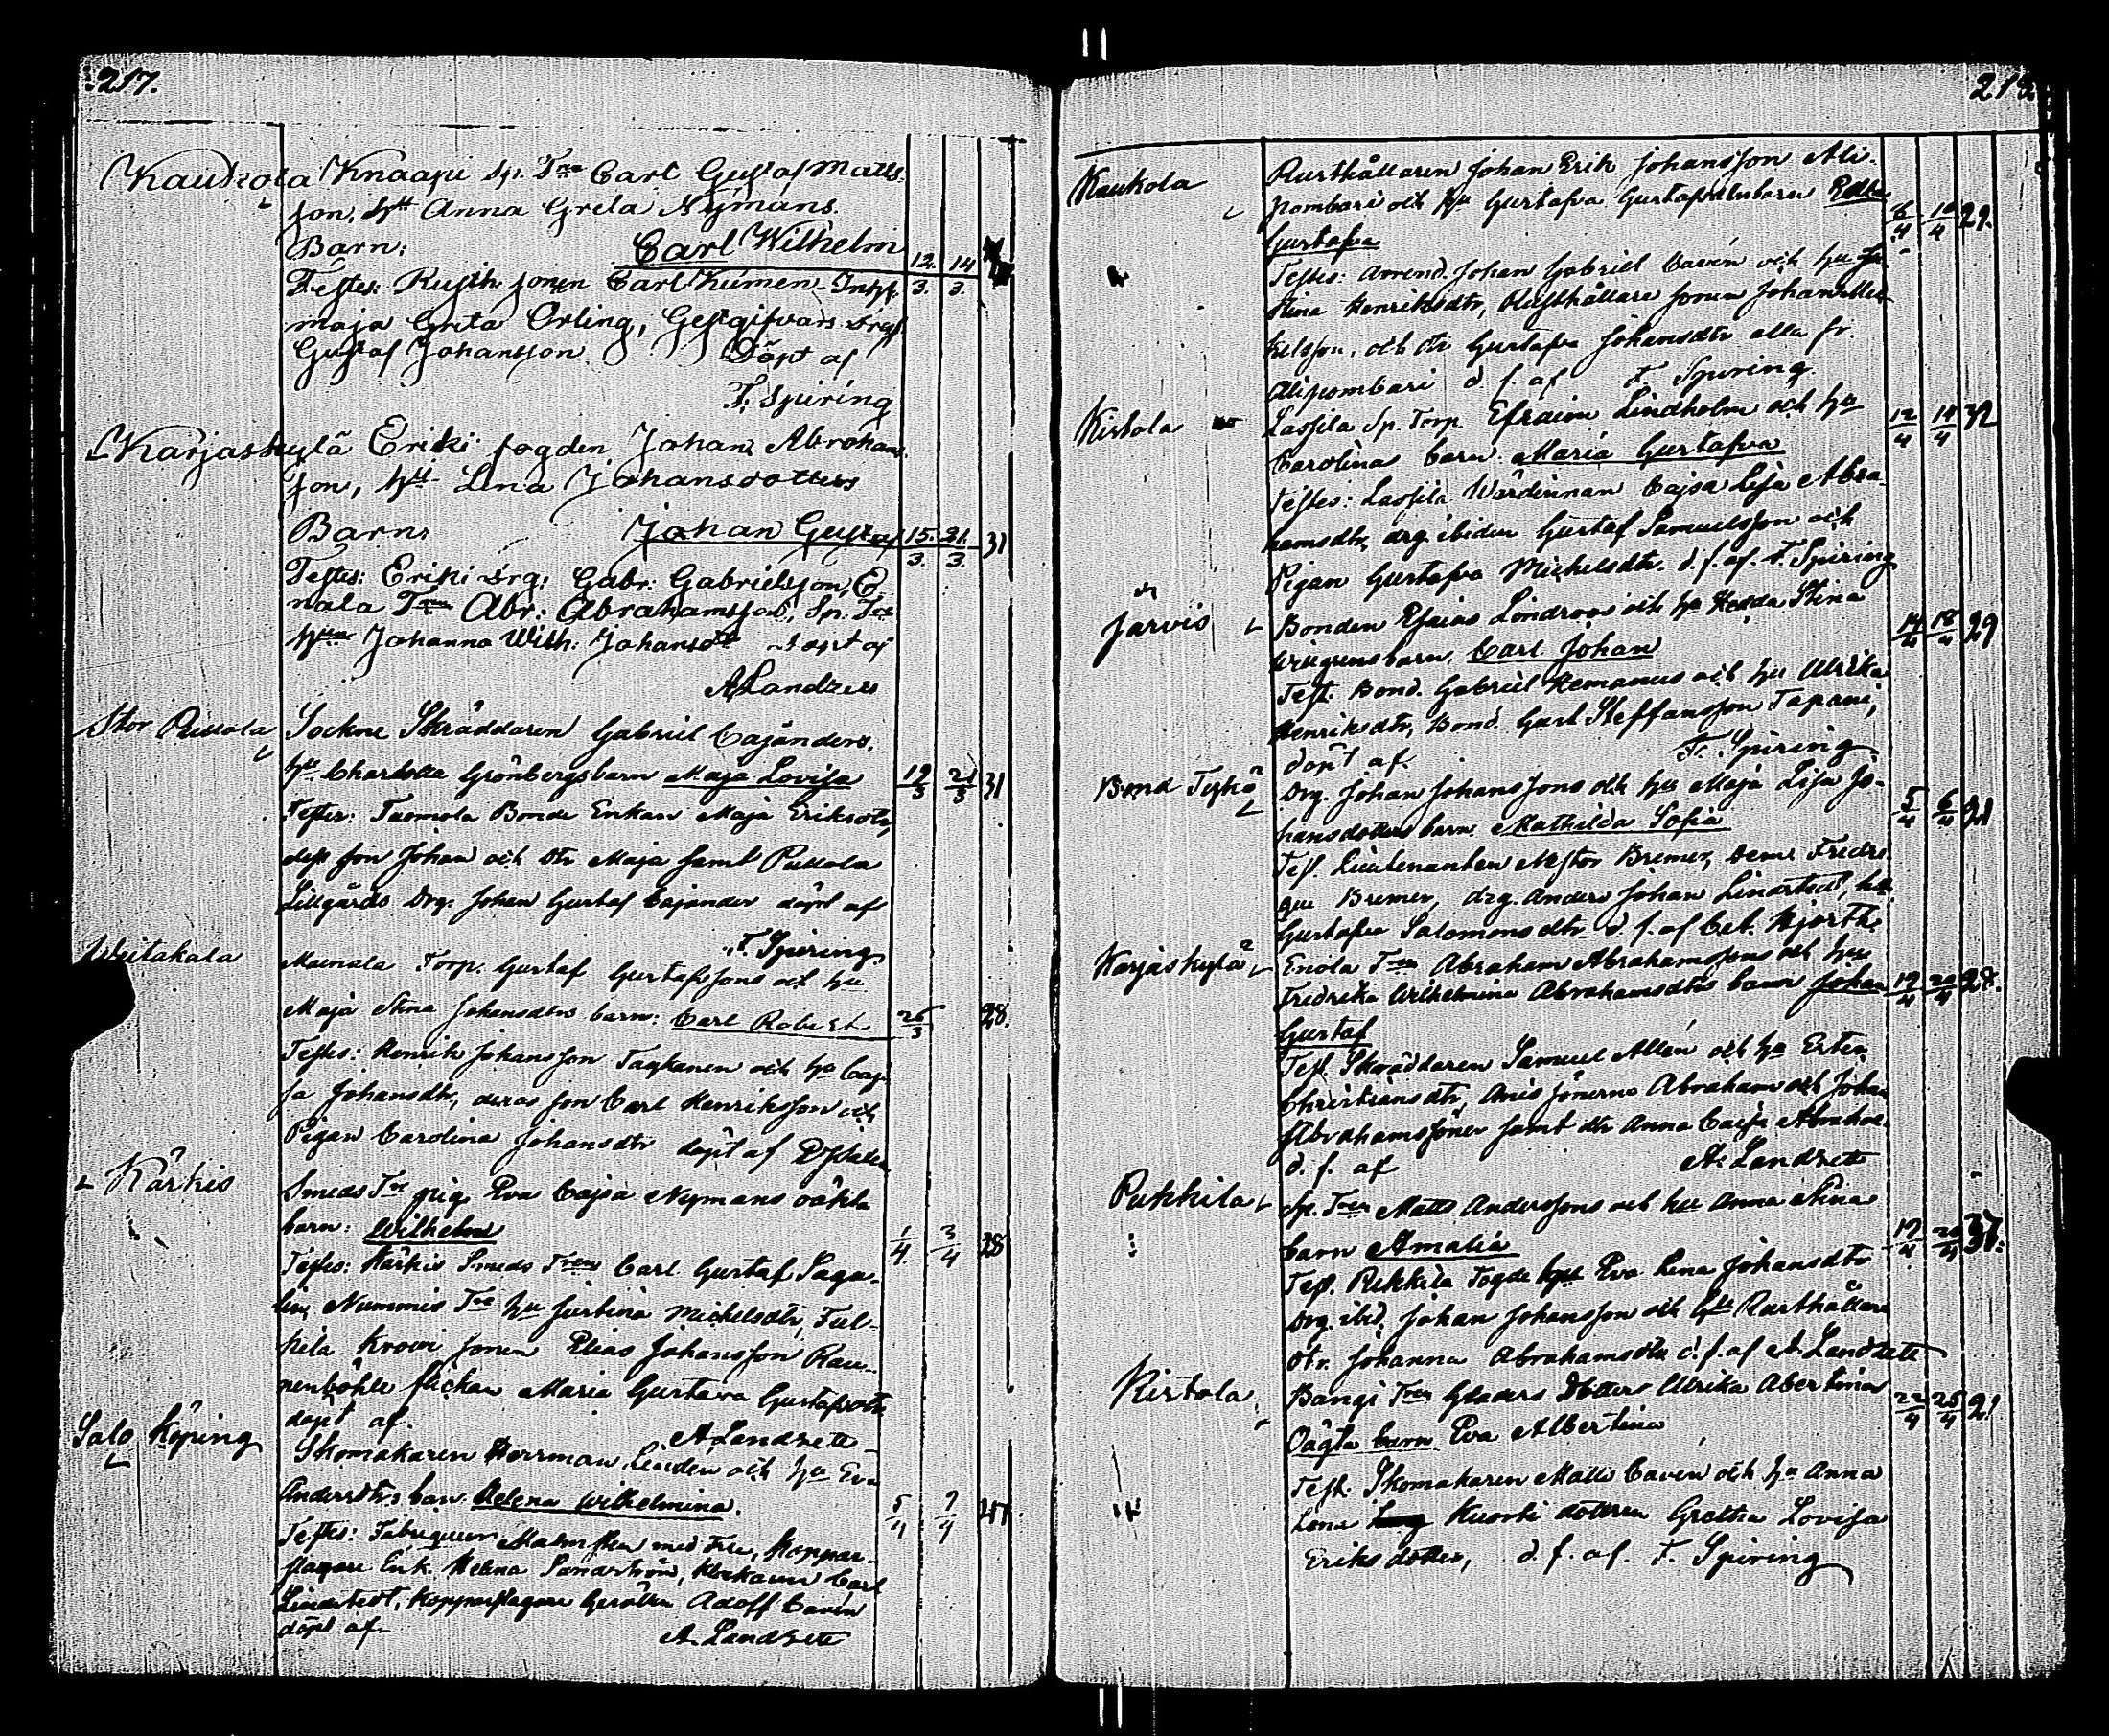 217.
Kaukola Knaapi Sp. Trp Carl Gustaf Matts-
son, hu Anna Greta Nymans.
Barn: Carl Wilhelm 12/3. 14/3.
Testes: Rusth. sonen Carl Kumen
maja Greta Orling, Gestgifvars drg
Gustaf Johansson. Döpt af
F. Spiring
Karjaskylä Eriki fogden Johan Abraham-
son, hu Lina Johansdotters
Barn: Johan Gustaf 15./3. 21./3. 31
Testes: Eriki drg: Gabr: Gabrielsson, E
nala Trp Abr: Abrahamsson, Sp. Trp
hu Johanna Wilh: Johansdtr döpt af
A Landzett
Stor Pullola Sockne Skräddaren Gabriel Cajanders,
hu Charlotta Grönbergs barn Maja Lovisa 19/3 21/3 31
Testes: Tuomola Bonde Enkan Maja Eriksdtr,
dess son Johan och dtr Maja samt Pullola
Lillgårds Drg. Johan Gustaf Cajander döpt af
F. Spiring
Torp. Gustaf Gustafssons och hu
Maja Stina Johansdtrs barn: Carl Robert 26/3 28.
Testes: Henrik Johansson och hu Caj-
sa Johansdtr, deras son Carl Henriksson och
Pigan Carolina Johansdtr döpt af
Kärkis Smeds Trp pig. Eva Cajsa Nymans oäkta
barn: Wilhelm 1/4. 3/4 28
Testes: Kärkis Smeds Trp Carl Gustaf Saga-
lin, Nummis Trp hu Justina Michelsdtr,
Krowi sonen Elias Johansson
flickan Maria Gustava Gustafsdtr
döpt af. A Landzett
Salo Köping Skomakaren Herrman Linden och hu Eva
Andersdtrs barn Helena Wilhelmina. 5/4 7/4
Testes: Fabriqueur Malmsten med Fru, Koppar-
slagare Enk. Helena Sandström, Klockaren Carl
Lindstedt, Kopparslagare Gesällen Adolf Cavén
döpt af. A. Landzett
218
Kaukola Rusthållaren Johan Erik Johansson Ali-
pombari och hu Gustafva Gustafsdtrs barn Edla 6/4 10/4 29.
Gustafva
Testes: Arrend. Johan Gabriel Cavén och hu
Stina Henriksdtr, Rusthållare sonen Johan Mic-
kelsson, och dtr Gustafva Johansdtr alla fr.
Alipombari d. f. af F. Spiring.
Kistola Lassila Sp. Torp. Efraim Lindholm och hu 12/4 14/4 32
Carolinas barn Maria Gustafva
Testes: Lassila Wärdinnan Cajsa Lisa Abra-
hamsdtr, drg ibidem Gustaf Samuelsson och
Pigan Gustafva Michelsdtr. d. f. af. F. Spiring
Järvis Bonden Esaias Lindroos och hu Hedda Stina 14/4 18/4 29
barn, Carl Johan
Test. Bond. Gabriel Hemanus och hu Ulrika
Henriksdtr, Bond. Gust Steffansson Tapani,
döpt af. F. Spiring
Drg. Johan Johanssons och hu Maja Lisa Jo-
hansdotters barn Mathilda Sofia 5/4 6/4
Test. Lieutenanten Nestor Bremer, Dem: Fredri
que Bremer, drg. Anders Johan Lindstedt,
Gustafva Salomonsdtr d. f. af Cel. Hjorth.
Karjaskylä Enola Trp Abraham Abrahamssons och hu
Fredrika Wilhelmina Abrahamsdtrs barn Johan 19/4 20/4 28.
Gustaf
Test. Skräddaren Samuel Allén och hu Ester
Christiansdtr, Anis sönerne Abraham och Johan
Abrahamssöner samt dtr Anna Caisa Abrahams
d. f. af A. Landzett
Pukkila Sp. Trp Matts Anderssons och hu Anna Stina
barn Amalia 19/4 20/4
Test. Pukkila Fogde hu Eva Lena Johansdtr
Drg. ibid. Johan Johansson och Rusthållare
dtr. Johanna Abrahamsdtr d. f. af A. Landzett
Kistola Bangi Trp Gladers Dotters Ulrika Abertina 22/4 25/4
Oägta barn Eva Albertina
Test. Skomakaren Matts Cavén och hu Anna
Lena Kuorti dottren Gretha Lovisa
Eriksdotter, d. f. af. F. Spiring